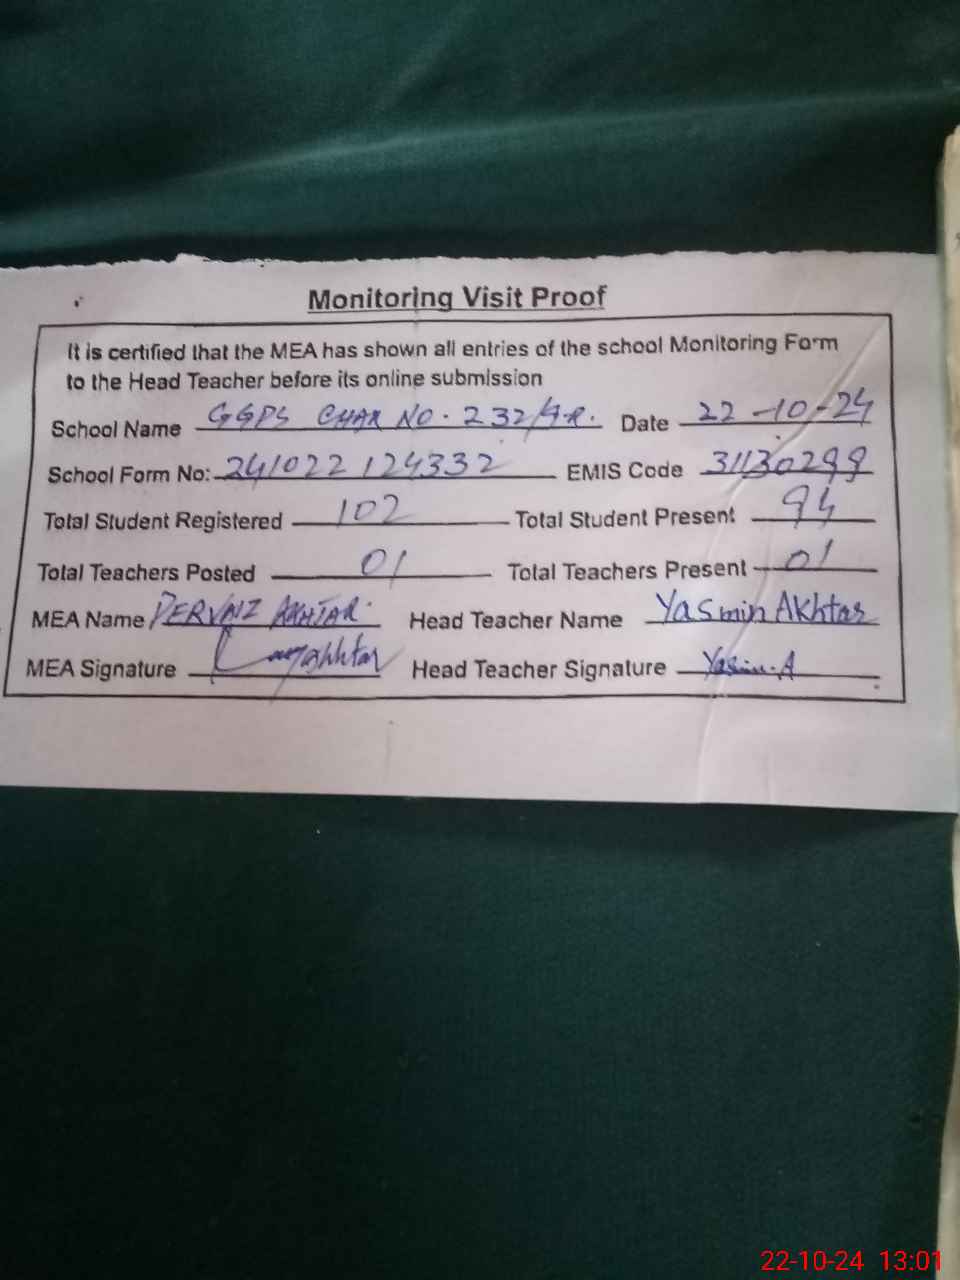 Monitoring Visit Proof
It is certified that the MEA has shown all entries of the school Monitoring Form
to the Head Teacher before its online submission
School Name GGPS CHAK NO. 232/9-R. Date 22-10-24
School Form No: 241022124332 EMIS Code 31130299
Total Student Registered 102 Total Student Present 94
Total Teachers Posted 01 Total Teachers Present 01
MEA Name PERVAIZ AKHTAR. Head Teacher Name Yasmin Akhtar
MEA Signature Head Teacher Signature Yasmin.A
22-10-24 13:01